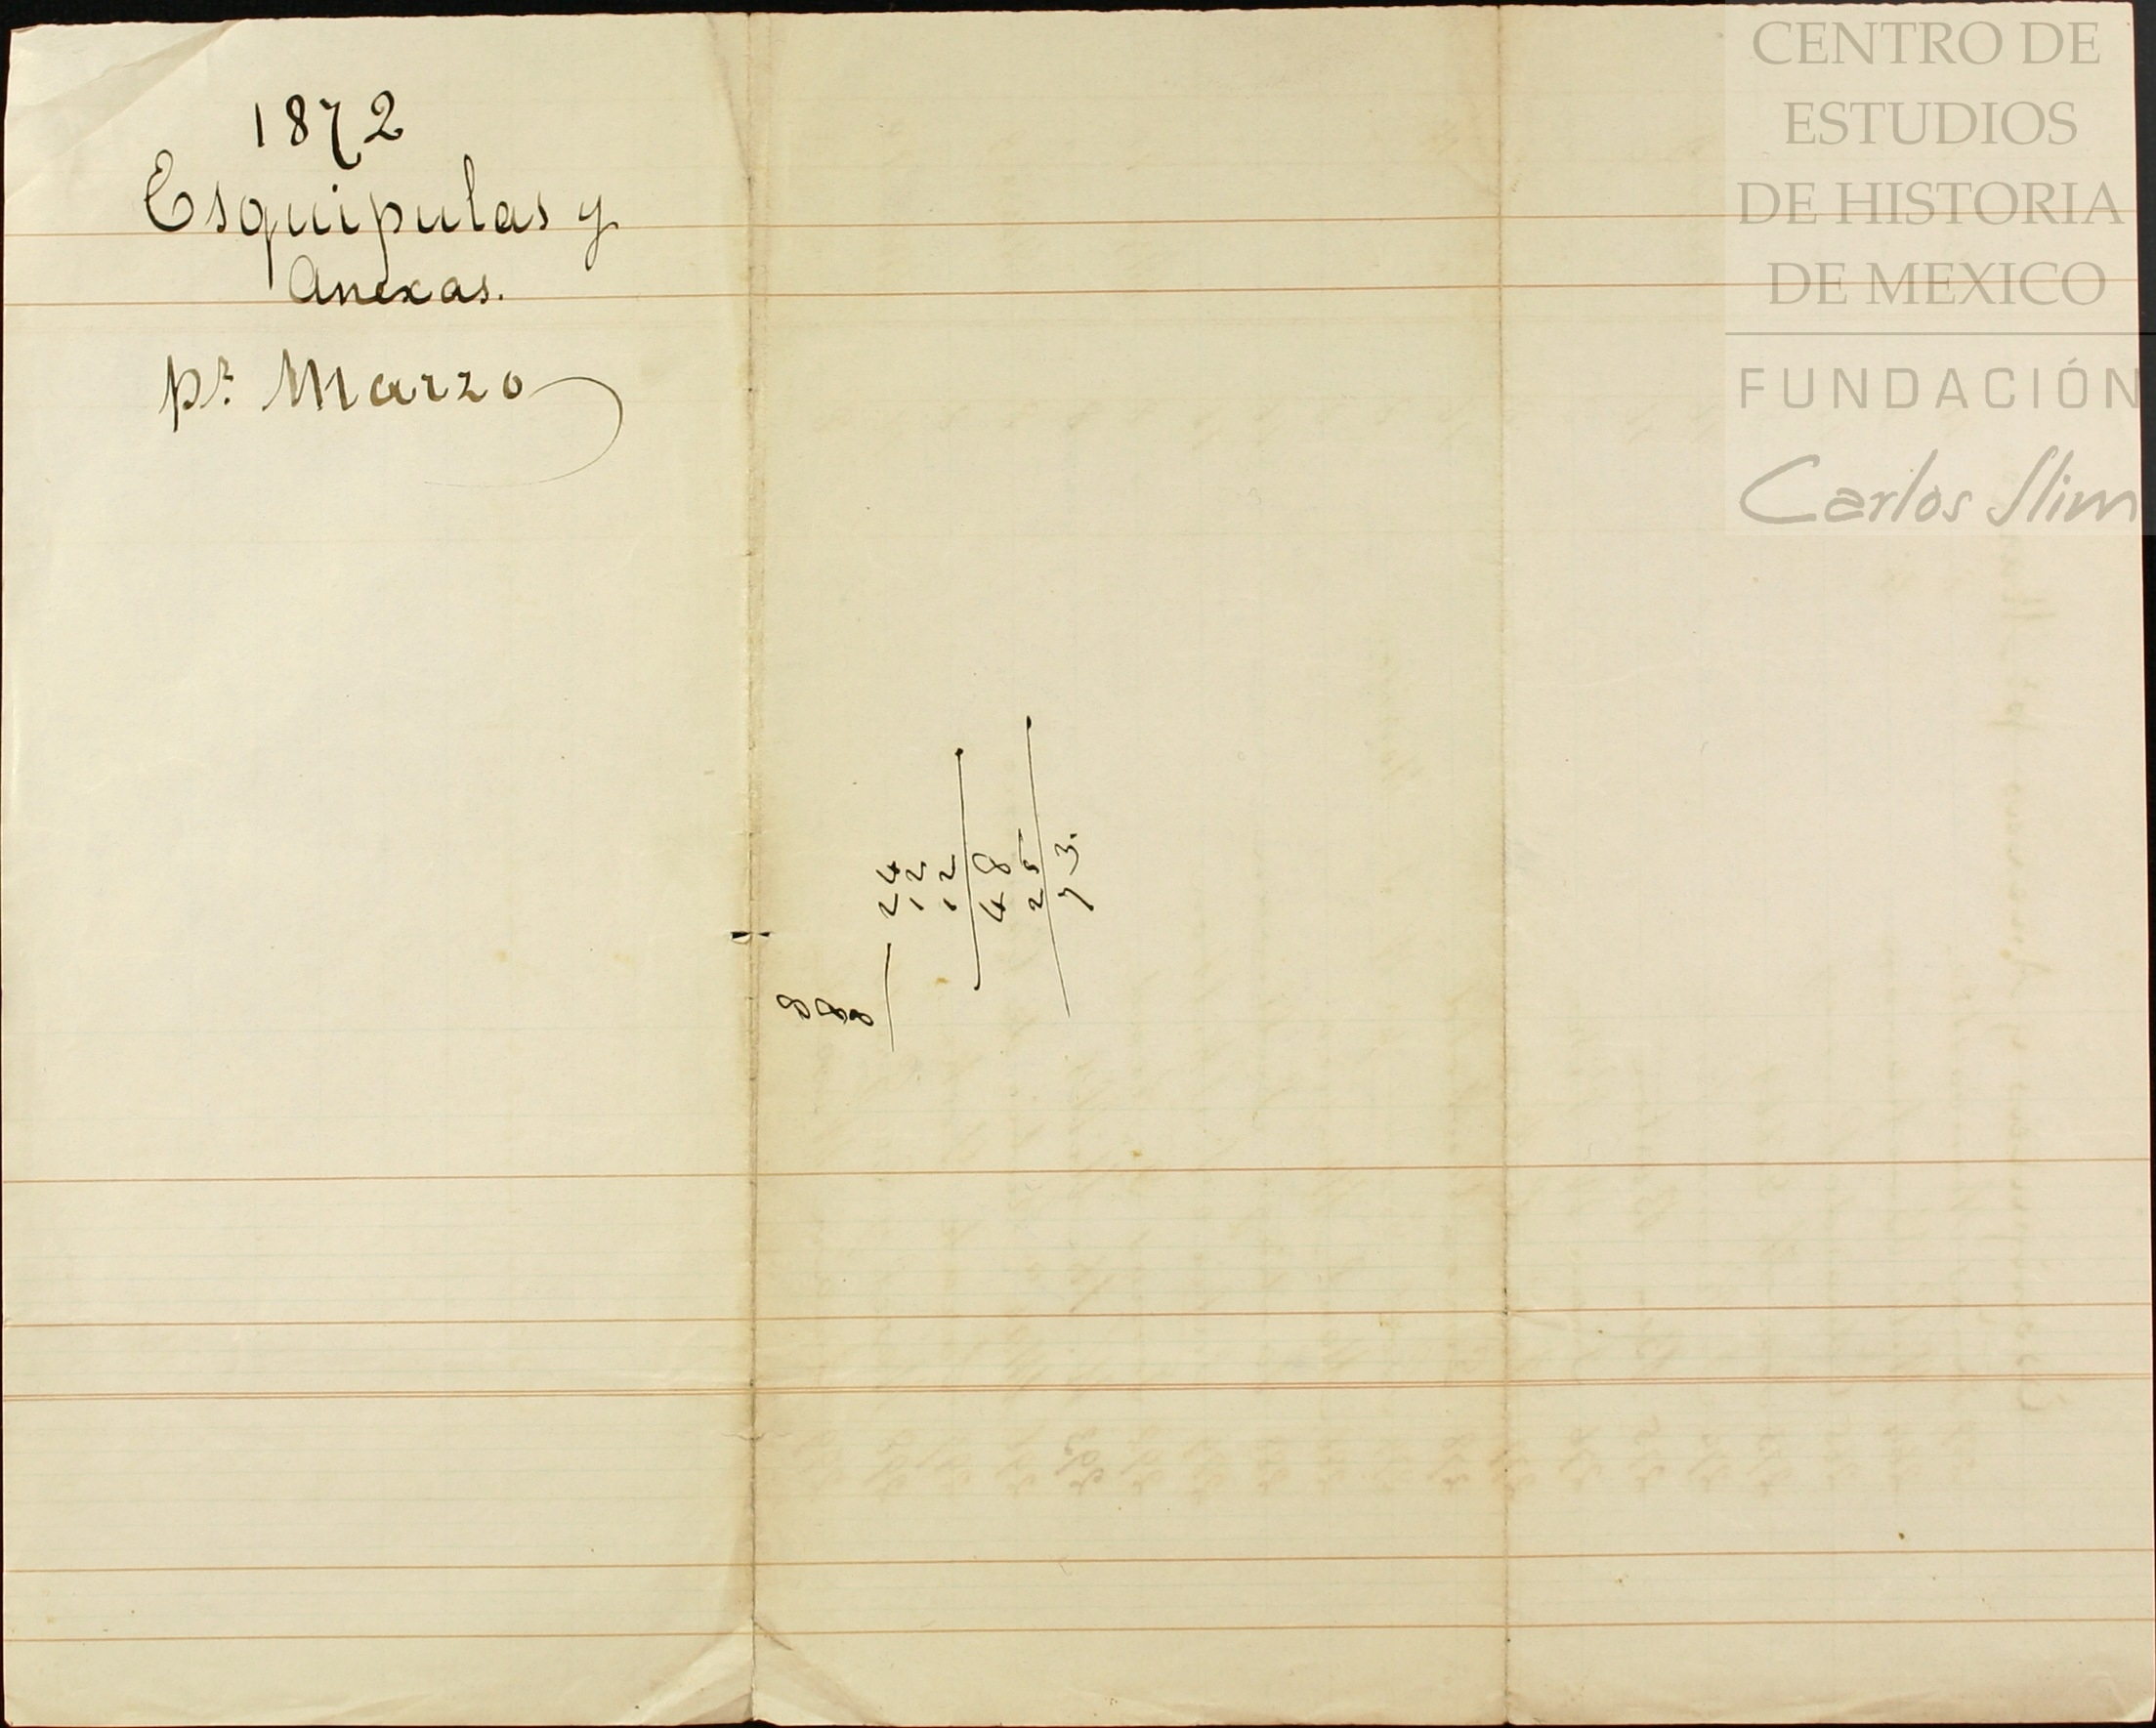 1872
Esquipulas y
Anexas.
pr. Marzo
24
12
12
48
25
73.
8
8
8
CENTRO DE
ESTUDIOS
DE HISTORIA
DE MEXICO
FUNDACIÓN
Carlos Slim